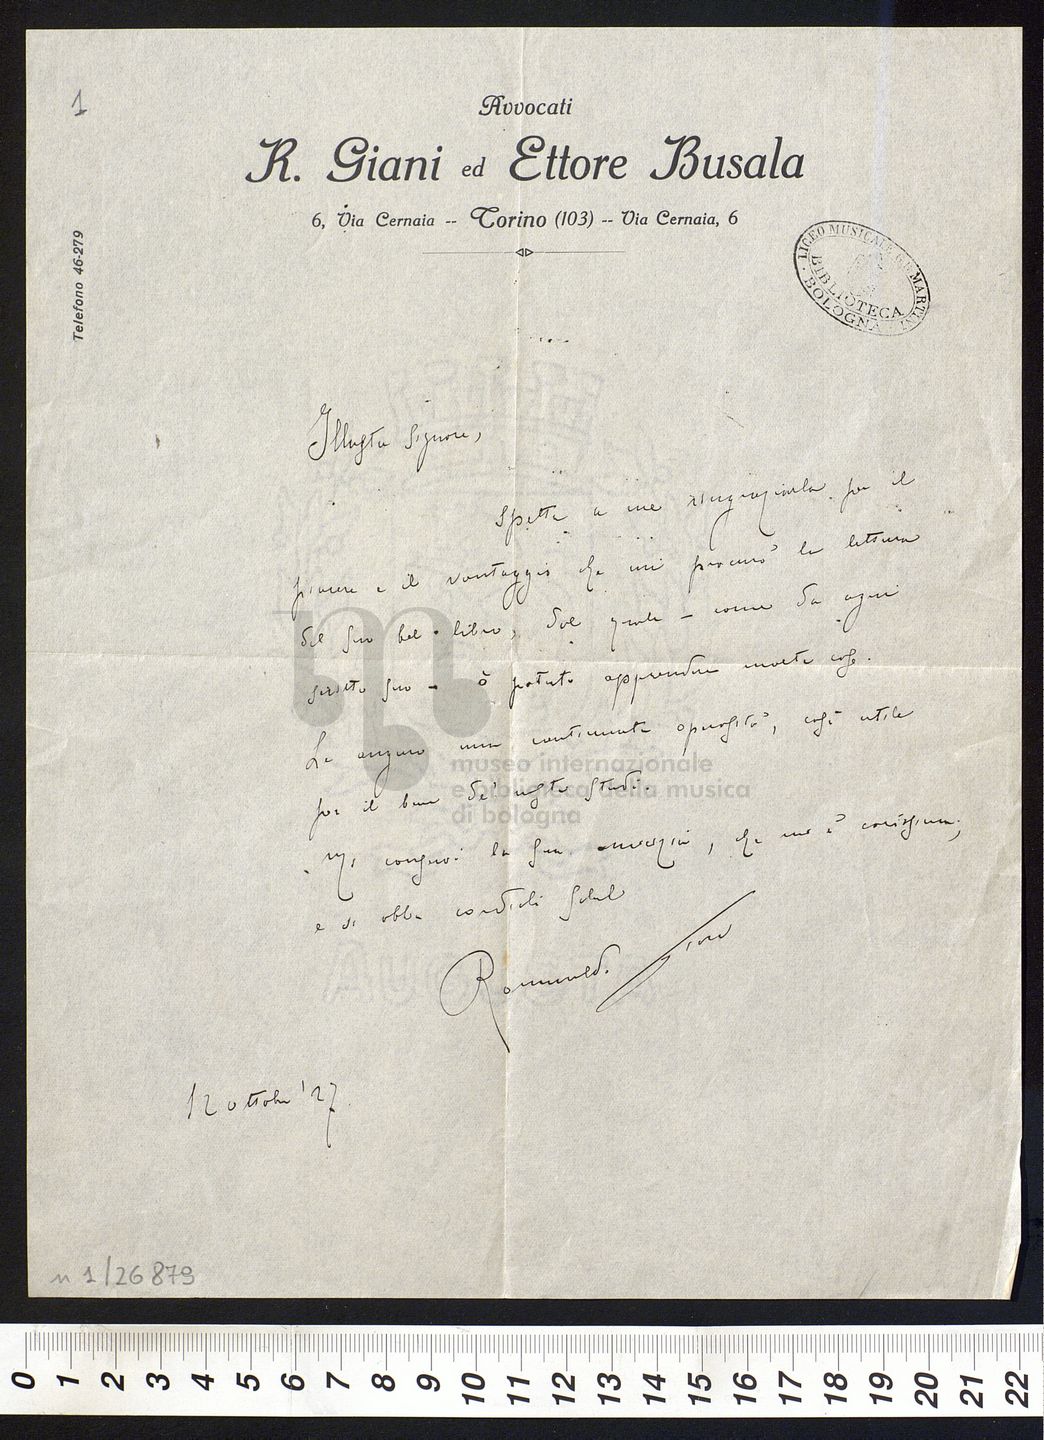 1
Avvocati
R. Giani ed Ettore Busala
6, Via Cernaia -- Torino (103) -- Via Cernaia, 6
Telefono 46-279
LICEO MUSICALE G.B. MARTINI
BIBLIOTECA
BOLOGNA
Illustre Signore,
Spetta a me ringraziarla per il
piacere e il vantaggio che mi procurò la lettura
del suo bel libro, dal quale – come da ogni
scritto suo – ò potuto apprendere molte cose.
Le auguro una continuata operosità, così utile
per il bene de' nostri studi.
Mi conservi la sua amicizia, che me è carissima;
e si abbia cordiali saluti
Romualdo Giani
12 ottobre '27.
museo internazionale
e biblioteca della musica
di bologna
AUGUSTA
n 1/26879
0 1 2 3 4 5 6 7 8 9 10 11 12 13 14 15 16 17 18 19 20 21 22